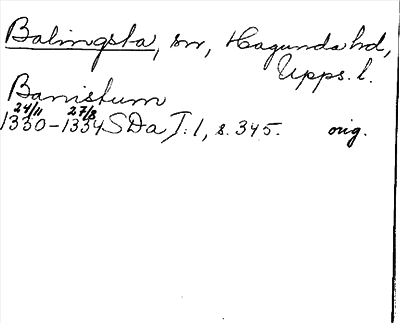 Balingsta, sn, Hagunda hd,
Upps. l.
Banistum
24/11 27/8
1330-1334 SDa I:1, s. 345. orig.